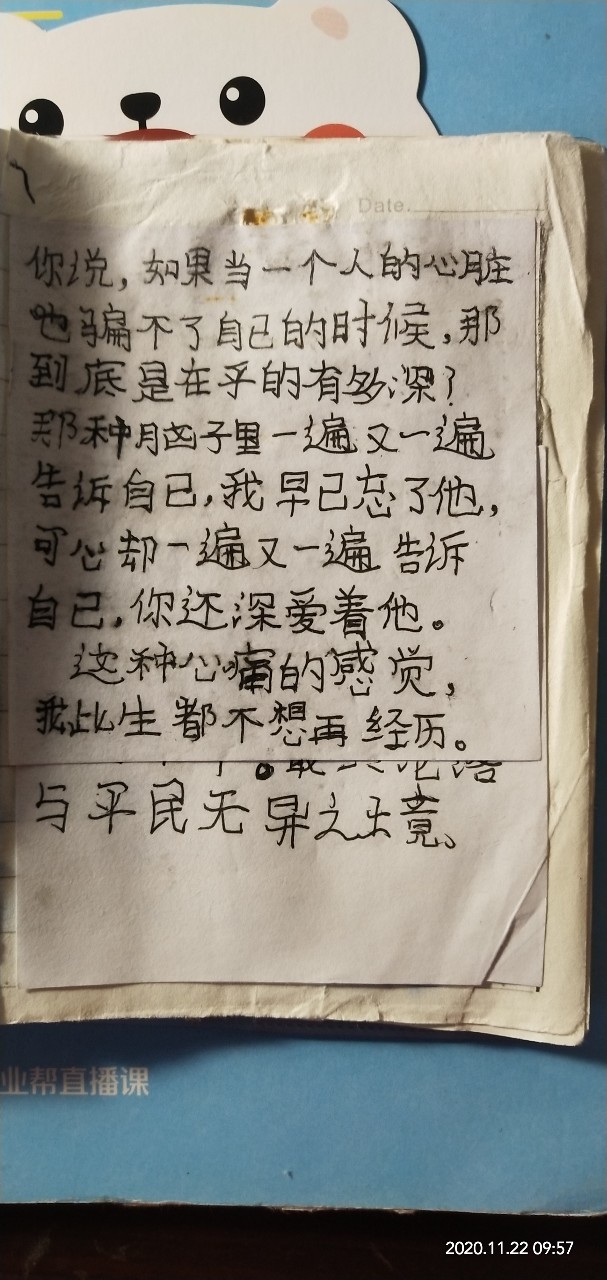 Date.
你说，如果当一个人的心脏
也骗不了自己的时候，那
到底是在乎的有多深？
那种脑子里一遍又一遍
告诉自己，我早已忘了他，
可心却一遍又一遍 告诉
自己，你还深爱着他。
这种心痛的感觉，
我此生都不想再经历。
与平民无异之土竟。
业帮直播课
2020.11.22 09:57